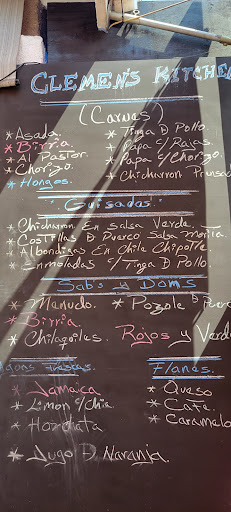 CLEMEN'S KITCHEN
(Carnes)
* Asada. * Tinga D Pollo.
* Birria. * Papa c/Rajas.
* Al Pastor. * Papa c/Chorizo.
* Chorizo. * Chicharron Prensado
* Hongos.
"Guisados"
* Chicharron En Salsa Verde
* Costillas D Puerco Salsa Morita
* Albondigas En Chile Chipotle
* Enmoladas c/Tinga D Pollo
Sabs y Doms
* Menudo. * Pozole D Puerco
* Birria
* Chilaquiles. Rojos y Verdes
Aguas Frescas Flanes.
* Jamaica * Queso
* Limon c/Chia. * Cafe.
* Horchata * Caramelo
* Jugo D. Naranja.